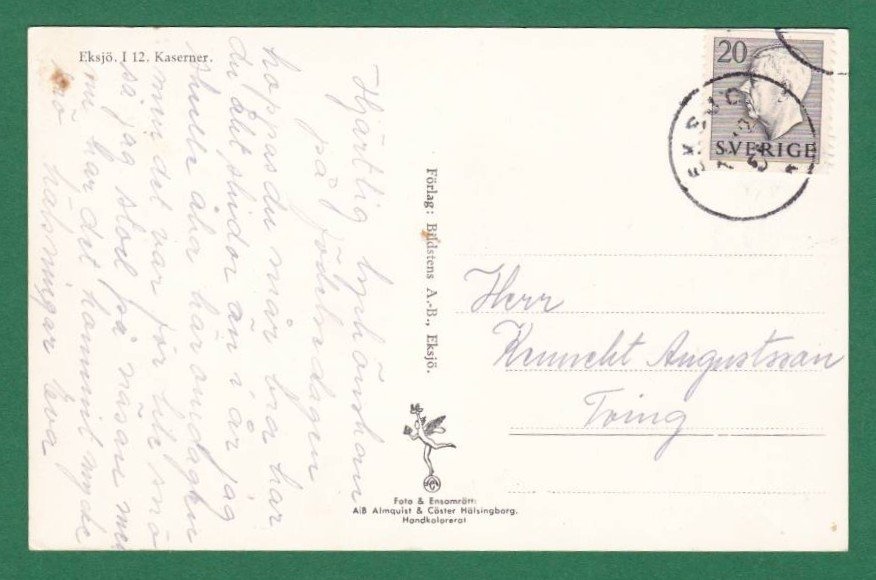 Eksjö. I 12. Kaserner.
Hjärtlig lyckönskan
på födelsedagen
hoppas du mår bra har
du åkt skidor än i år jag
skulle åka häromdagen
men det var för lite snö
så jag stod på näsan men
nu har det kommit mycke
snö hälsningar Eva
Förlag: Bildstens A.-B., Eksjö.
Foto & Ensamrätt:
A/B Almquist & Cöster Hälsingborg.
Handkolorerat
20
SVERIGE
EKSJÖ
Herr
Kennneht Augustsson
Tving